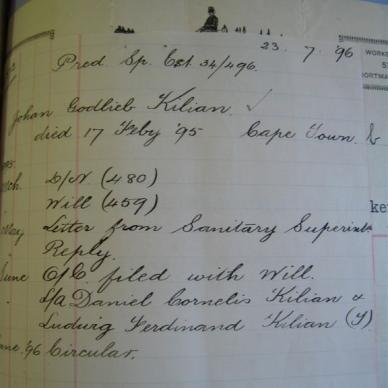 23. 7. 96
Pred Sp. Est 34/496.
Johan Godlieb Kilian. ✓
died 17 Feby '95 Cape Town.
D/N. (480)
Will (459)
May Letter from Sanitary Superintt
Reply.
June O/C. filed with Will.
L/A Daniel Cornelis Kilian &
Ludwig Ferdinand Kilian (J)
'96 Circular.
WORKE
ke